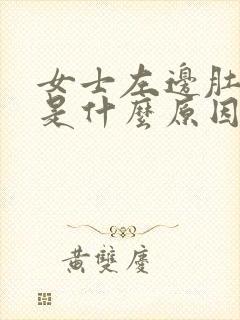 女士左邊肚
是什麼原因
黃雙慶